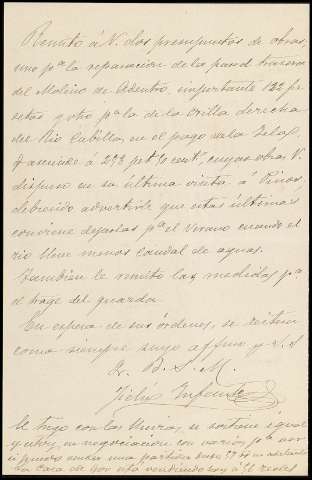 Remito á V. dos presupuestos de obras,
uno pª la reparacion de la pared trasera
del Molino de Adentro, importante 122 pe-
setas y otro pª la de la orilla derecha
del Rio Cubillas, en el pago de la
asciende á 273 pets cents, cuyas obras V.
dispuso en su última visita á Pinos,
debiendo advertirle que estas últimas
conviene dejarlas pª el Verano cuando el
rio lleve menos caudal de aguas.
Tambien le remito las medidas pª
el traje del guarda.
En espera de sus órdenes, se reitera
como siempre suyo affmo y s. s.
Q. B. S. M.
El trigo con las lluvias se sostiene igual
y estoy en negociacion con varios pª ver
si puedo vender una partida desde 57 rs en adelante
En casa de estan vendiendo hoy á reales